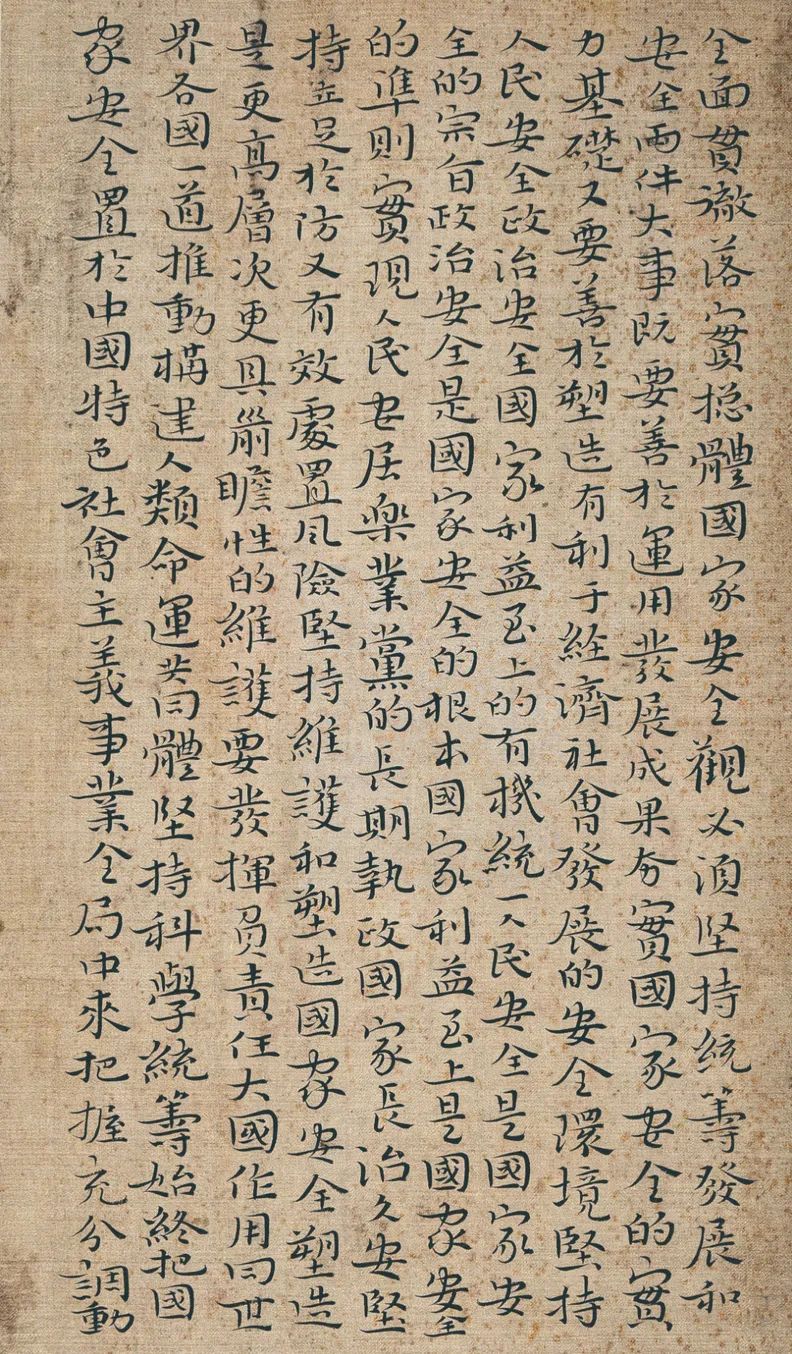 全面貫徹落實總體國家安全觀必須堅持統籌發展和
安全兩件大事既要善於運用發展成果夯實國家安全的實
力基礎又要善於塑造有利于經濟社會發展的安全環境堅持
人民安全政治安全國家利益至上的有機統一人民安全是國家安
全的宗旨政治安全是國家安全的根本國家利益至上是國家安全
的準則實現人民安居樂業黨的長期執政國家長治久安堅
持立足於防又有效處置風險堅持維護和塑造國家安全塑造
是更高層次更具前瞻性的維護要發揮負責任大國作用同世
界各國一道推動構建人類命運共同體堅持科學統籌始終把國
家安全置於中國特色社會主義事業全局中來把握充分調動